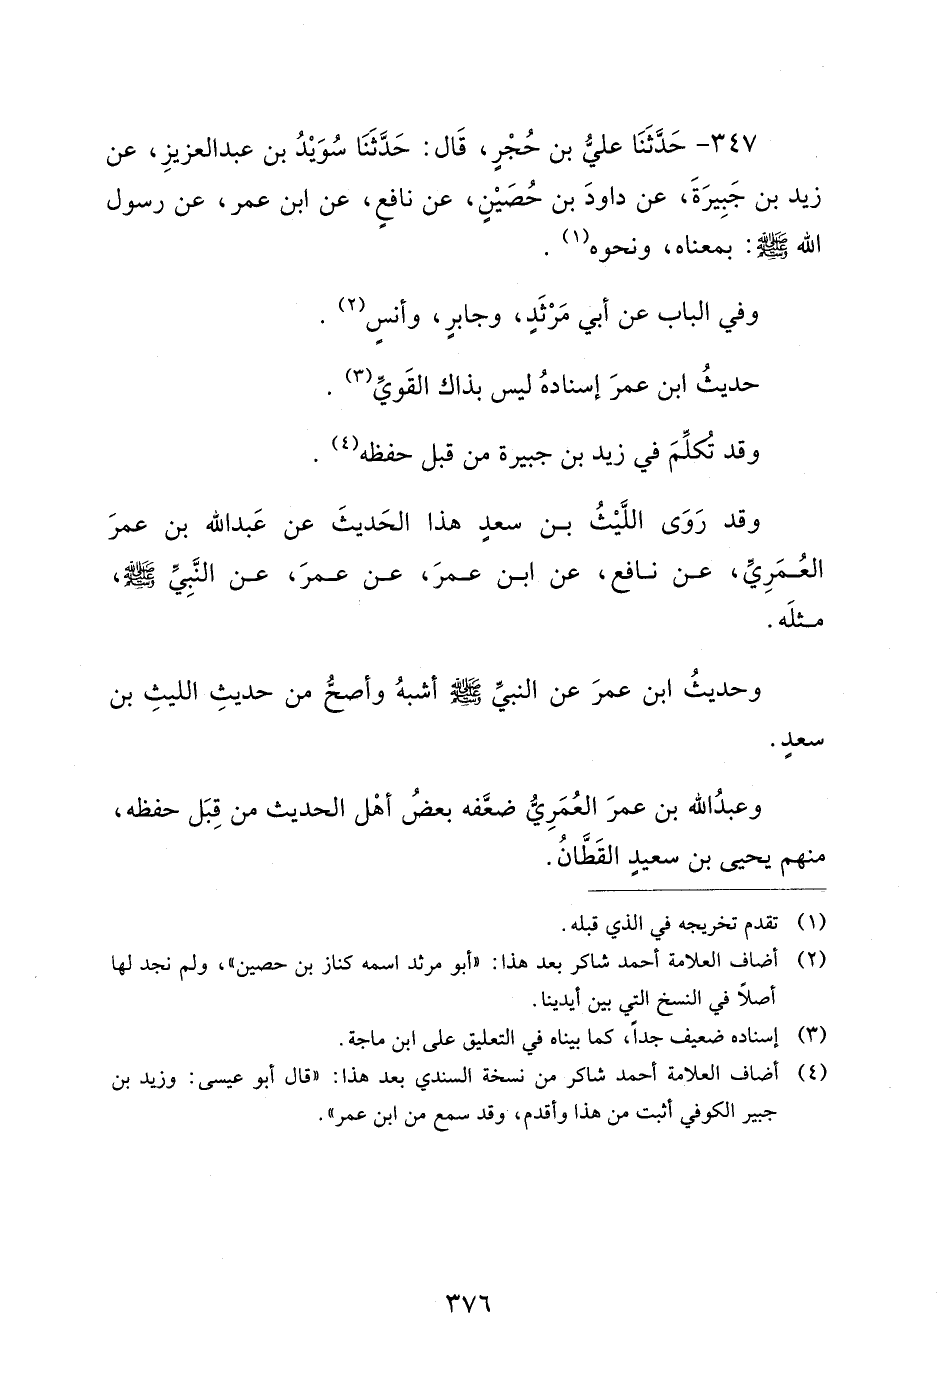 ٣٤٧- حَدَّثَنَا عليُّ بن حُجْرٍ، قَال: حَدَّثَنَا سُوَيْدُ بن عبدالعزيزِ، عن
زيد بن جَبِيرَةَ، عن داودَ بن حُصَيْنٍ، عن نافعٍ، عن ابن عمر، عن رسول
الله ﷺ: بمعناه، ونحوه(١) .
وفي الباب عن أبي مَرْثَدٍ، وجابرٍ، وأنسٍ(٢) .
حديثُ ابن عمرَ إسنادهُ ليس بذاك القَويِّ(٣) .
وقد تُكلِّمَ في زيد بن جبيرة من قبل حفظه(٤) .
وقد رَوَى اللَّيْثُ بن سعدٍ هذا الحَديثَ عن عَبدالله بن عمرَ
العُمَرِيِّ، عن نافع، عن ابن عمرَ، عن عمرَ، عن النَّبِيِّ ﷺ،
مثلَه .
وحديثُ ابن عمرَ عن النبيِّ ﷺ أشبهُ وأصحُّ من حديثِ الليثِ بن
سعدٍ .
وعبدُالله بن عمرَ العُمَرِيُّ ضعَّفه بعضُ أهْل الحديث من قِبَل حفظه،
منهم يحيى بن سعيدٍ القَطَّانُ .
(١) تقدم تخريجه في الذي قبله .
(٢) أضاف العلامة أحمد شاكر بعد هذا: «أبو مرثد اسمه كناز بن حصين»، ولم نجد لها
أصلاً في النسخ التي بين أيدينا .
(٣) إسناده ضعيف جداً، كما بيناه في التعليق على ابن ماجة .
(٤) أضاف العلامة أحمد شاكر من نسخة السندي بعد هذا: «قال أبو عيسى: وزيد بن
جبير الكوفي أثبت من هذا وأقدم، وقد سمع من ابن عمر» .
٣٧٦